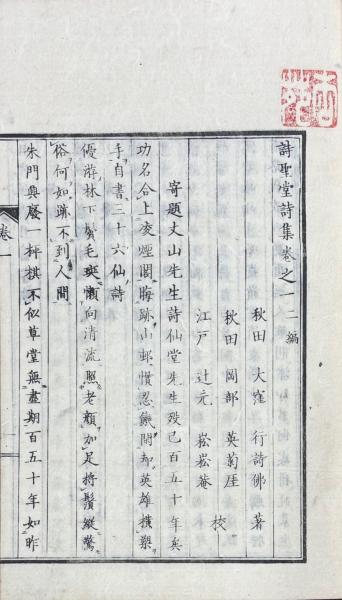 詩聖堂詩集卷之一二編
秋田 大窪 行詩佛 著
秋田 岡部 英菊厓
江戸 辻元 崧崧庵 校
寄題丈山先生詩仙堂先生歿已百五十年矣
功名合上凌煙閣晦跡山邨慣忍饑閒却英雄橫槊
手自書三十六仙詩
優游林下鬢毛斑懶向清流照老顏加足將鬚縱驚
俗何如跡不到人間
朱門興廢一枰棋不似草堂無盡期百五十年如昨
卷一